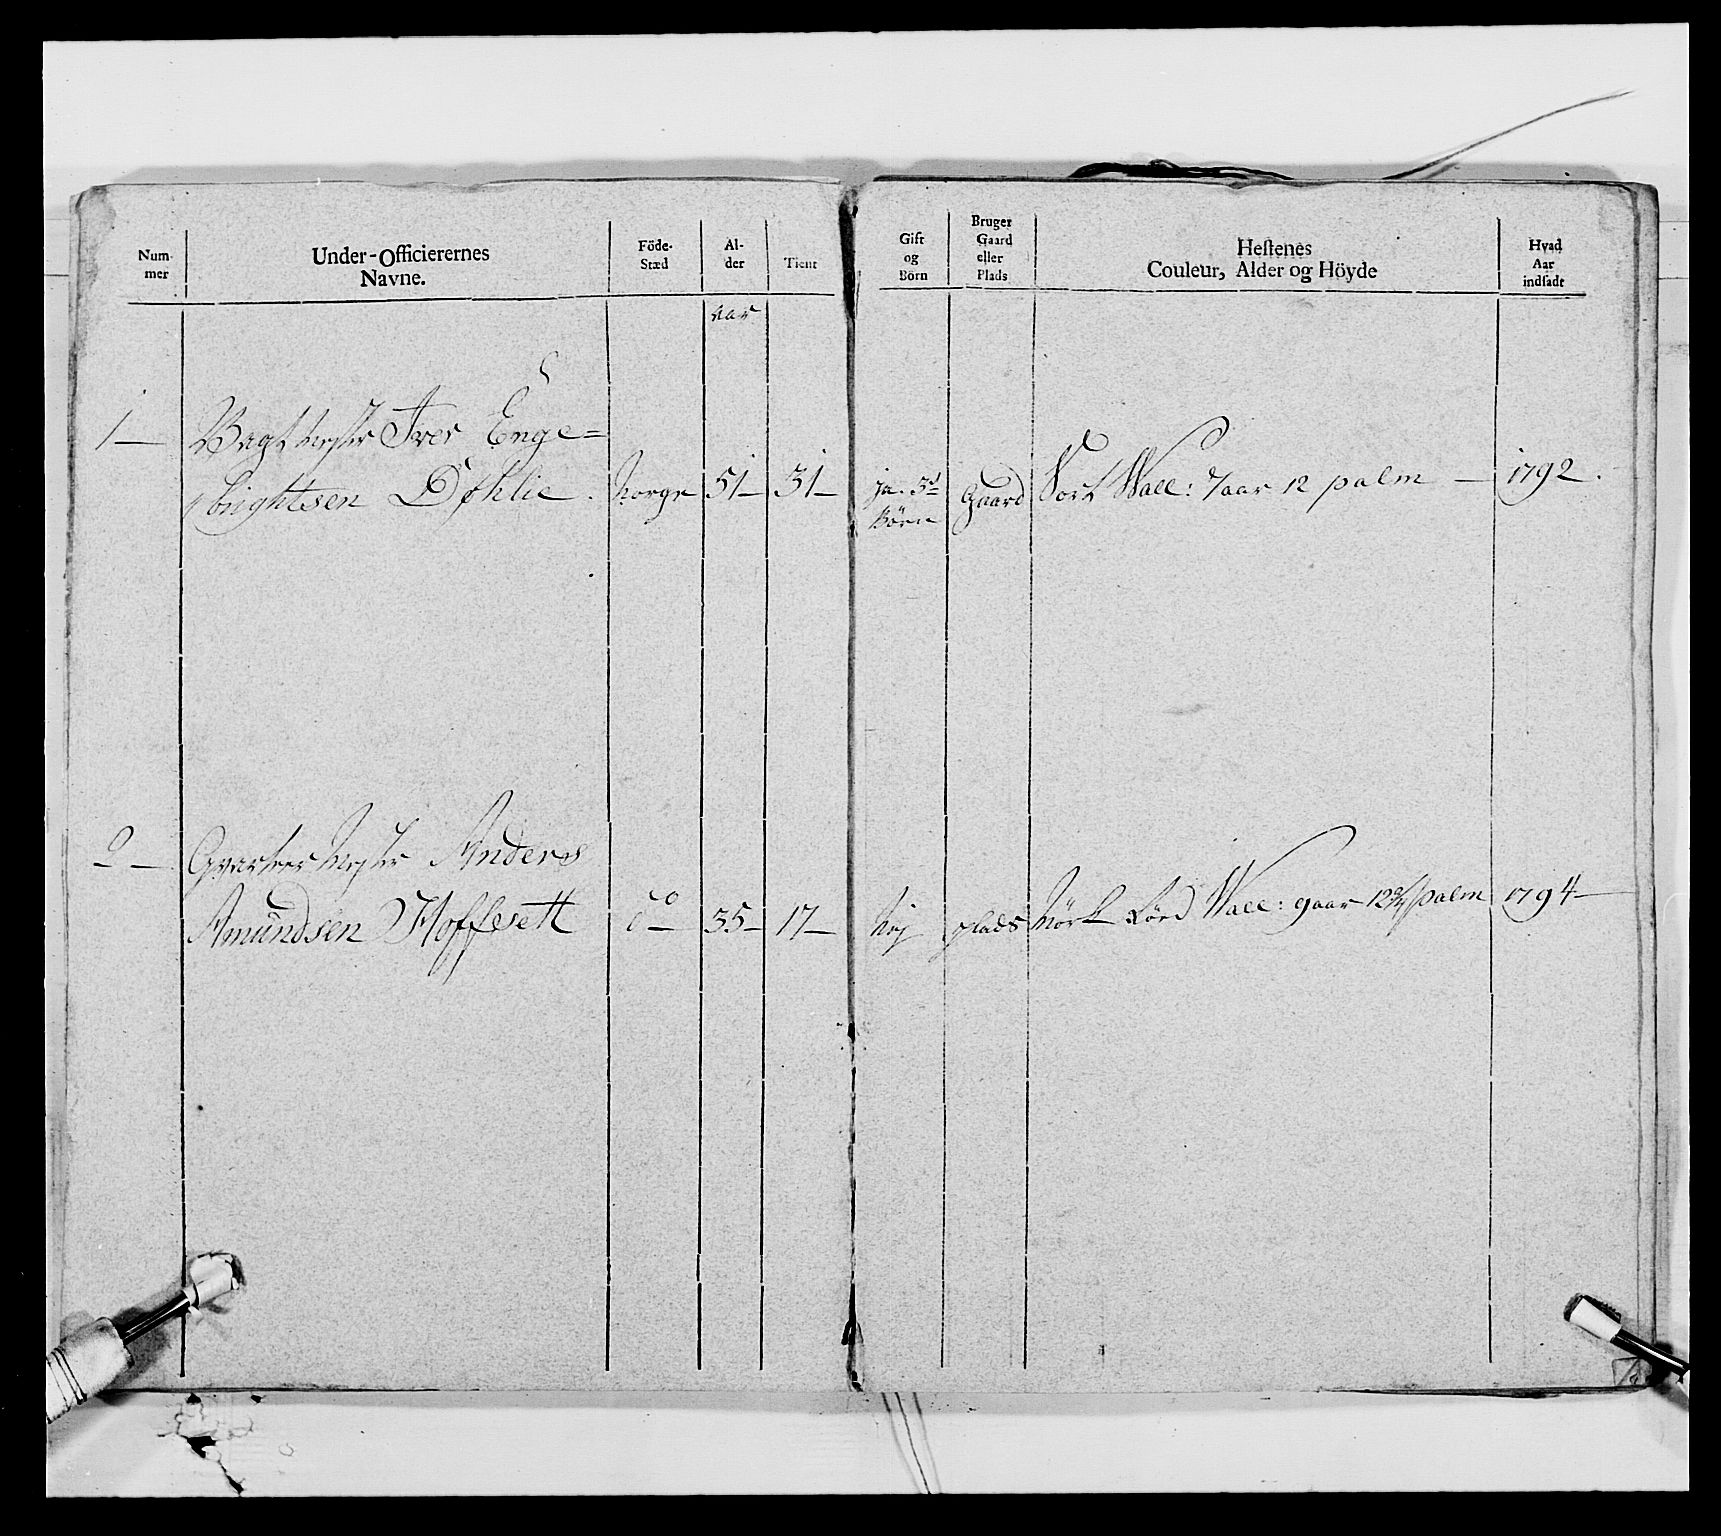 Num-
mer
Under-Officierernes
Navne.
Föde-
Stæd
Al-
der
Tient
Gift
og
Börn
Bruger
Gaard
eller
Plads
Hestenes
Couleur, Alder og Höyde
Hvad
Aar
indsadt
aar
1 — Vagtmester Iver Enge=
brightsen Døhlie . Norge 51 — 31 — ja. 3de Gaard Sort Wall: 7 aar 12 palm — 1792.
Börn
2 — Qvarteermester Anders
Amundsen Hoffsett do — 35 — 17 — Nej plads Mörk Röed Wall: 9 aar 12 palm 1794 —